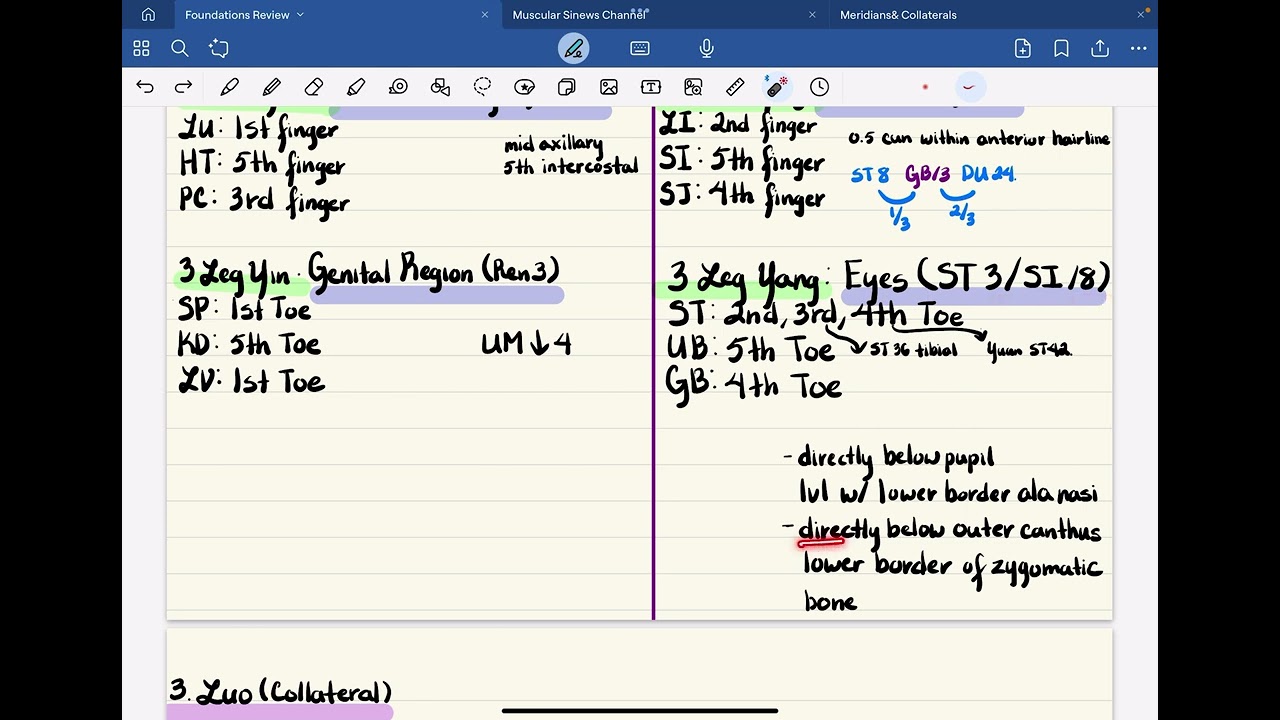 Foundations Review
Muscular Sinews Channel
Meridians& Collaterals
LU: 1st finger
HT: 5th finger
PC: 3rd finger
mid axillary
5th intercostal
LI: 2nd finger
SI: 5th finger
SJ: 4th finger
0.5 cun within anterior hairline
ST 8 GB13 DU24.
1/3 2/3
3 Leg Yin: Genital Region (Ren3)
SP: 1st Toe
KD: 5th Toe
LV: 1st Toe
UM ↓ 4
3 Leg Yang: Eyes (ST 3/SI 18)
ST: 2nd, 3rd, 4th Toe
UB: 5th Toe
GB: 4th Toe
ST 36 tibial
Yuan ST42.
- directly below pupil
lvl w/ lower border ala nasi
- directly below outer canthus
lower border of zygomatic
bone
3. Luo (Collateral)